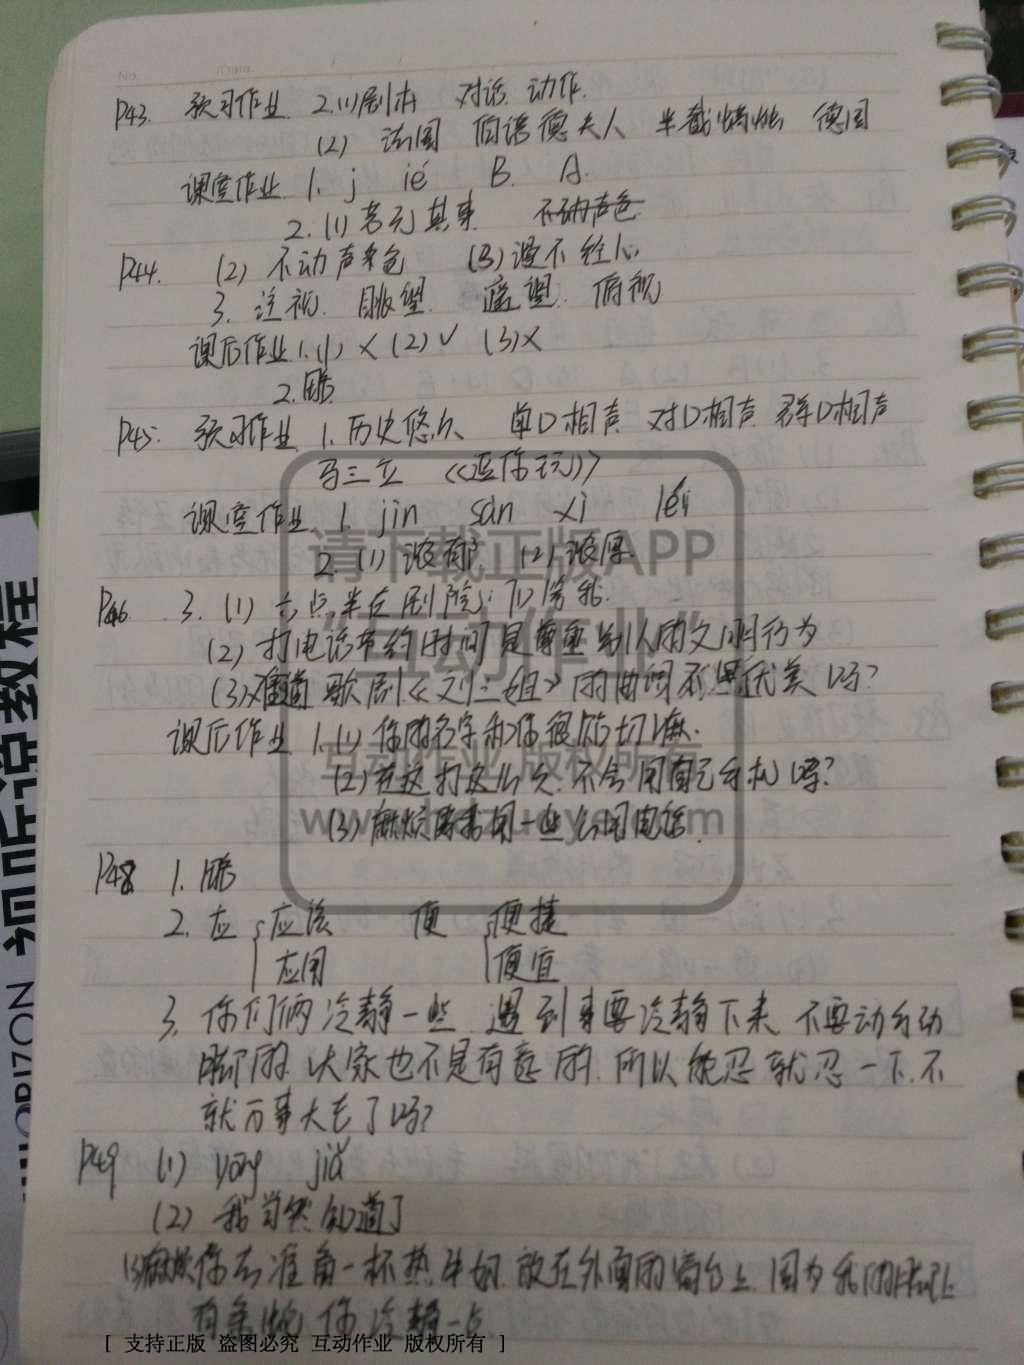 P43. 预习作业 2.(1)剧本 对话 动作.
(2) 法国 伯诺德夫人 半截蜡烛 德国
课堂作业 1. j ié B. A.
2. (1) 若无其事 不动声色
P44. (2) 不动声色 (3)漫不经心
3. 注视. 眺望. 瞻望. 俯视
课后作业 1.(1) × (2) √ (3)×
2.略
P45. 预习作业 1.历史悠久 单口相声 对口相声 群口相声
马三立 《逗你玩》
课堂作业 1. jìn sǎn xì
请下载正版APP
2. (1) 浓郁 (2) 浓厚
P46 3. (1) 六点半在剧院门口等我.
“互动作业”
(2) 打电话节约时间是尊重别人的文明行为
(3)难道歌剧《刘三姐》的曲词不是优美吗?
课后作业 1.(1) 你的名字和你很贴切嘛.
互动作业 版权所有
(2)在这打这么久.不会用自己手机吗?
(3) 麻烦 用一些公用电话.
P48 1.略
2. 应 应该 便 便捷
应用 便宜
3. 你们俩冷静一些 遇到事要冷静下来 不要动手动
脚的. 大家也不是有意的. 所以能忍就忍一下.不
就万事大吉了吗?
P49 (1) yǒng jiá
(2) 我当然知道了
麻烦你去准备一杯热牛奶.放在外面的窗台上 因为我的腿上
有条蛇 你冷静一点
[ 支持正版 盗图必究 互动作业 版权所有 ]
HORIZON 视听说教程